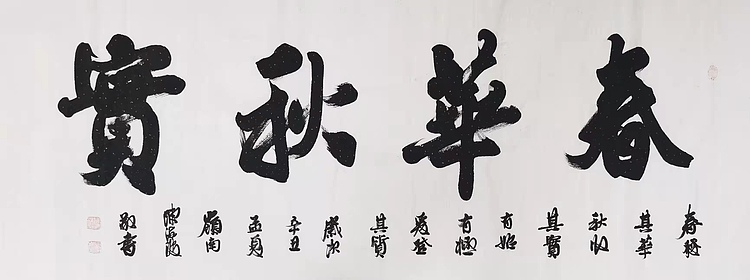 春華秋實
春發
其華
秋收
其實
有始
有極
爰登
其質
歲次
辛丑
孟夏
嶺南
敬書